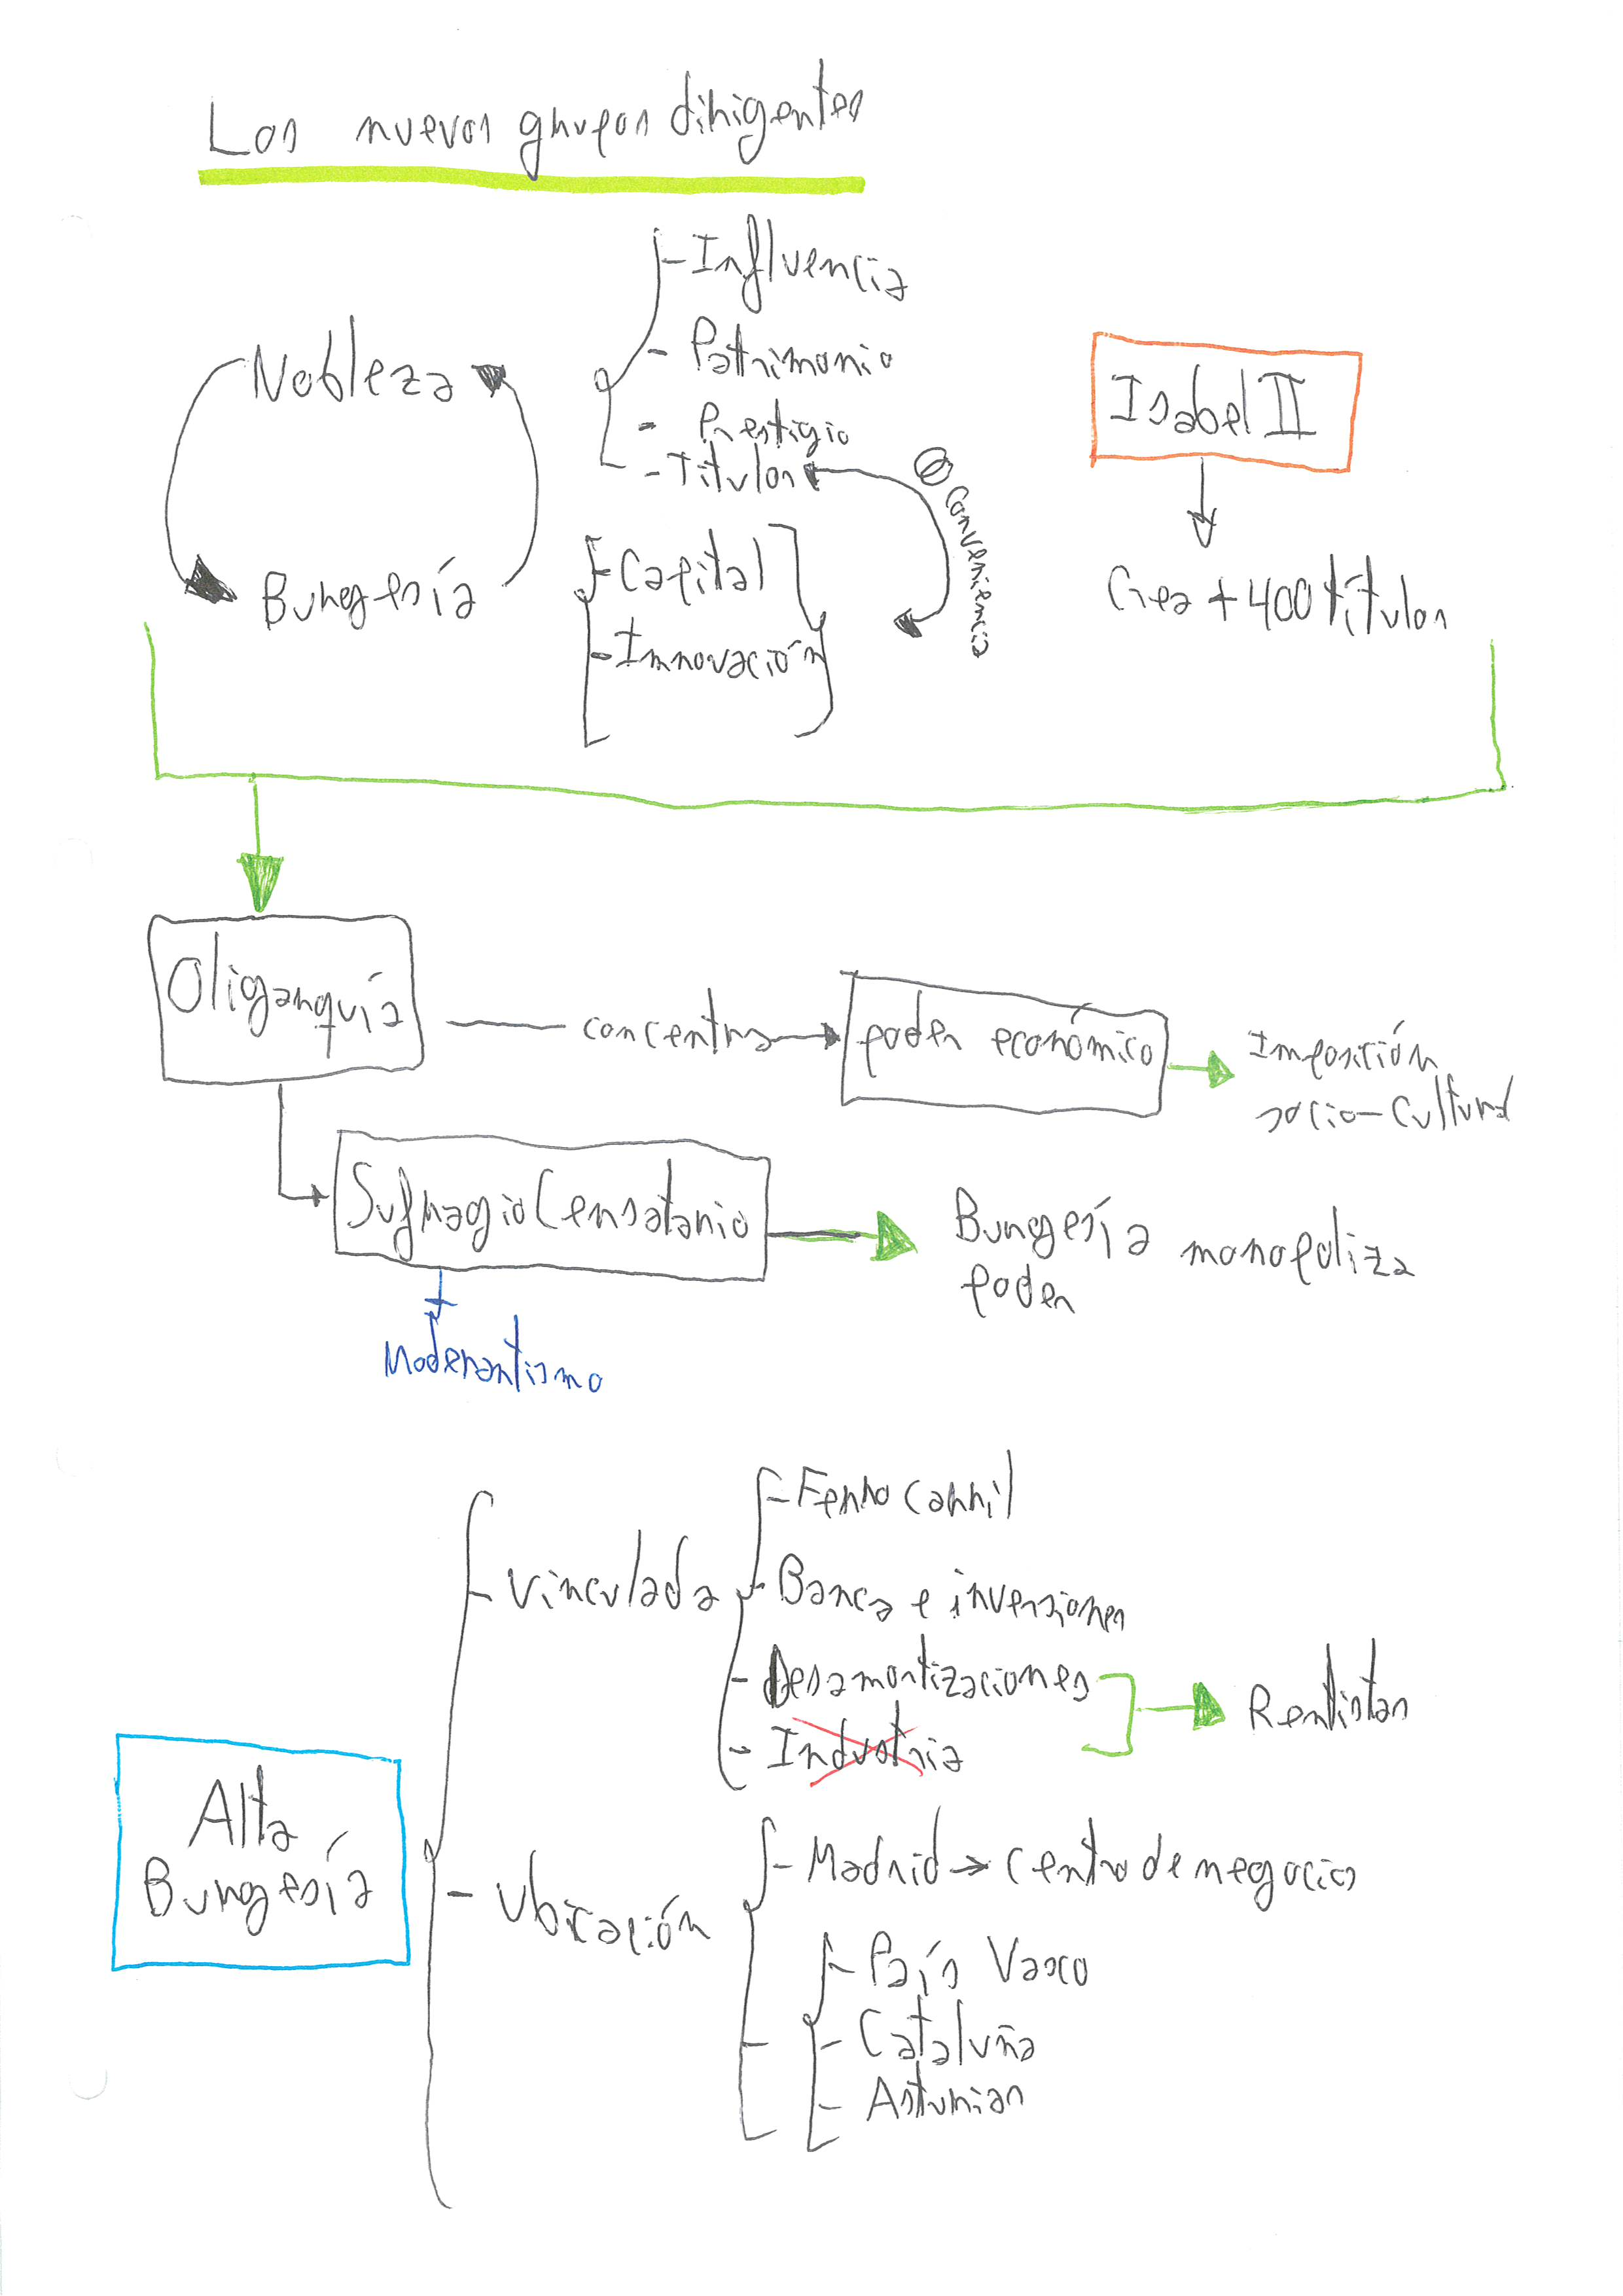 Los nuevos grupos dirigentes
- Influencia
Nobleza
- Patrimonio
- Prestigio
- Titulos
Conveniencia
Isabel II
Crea + 400 títulos
Burgesía
- Capital
- Innovación
Oligarquía
concentra
poder económico
Imposición
socio-cultural
Sufragio Censatario
Burgesía monopoliza
poder
Moderantismo
Alta
Burgesía
- Vinculada
- Ferrocarril
- Banca e inversiones
- Desamortizaciones
- Industria
Rentistas
- Ubicación
- Madrid → Centro de negocios
- País Vasco
- Cataluña
- Asturias